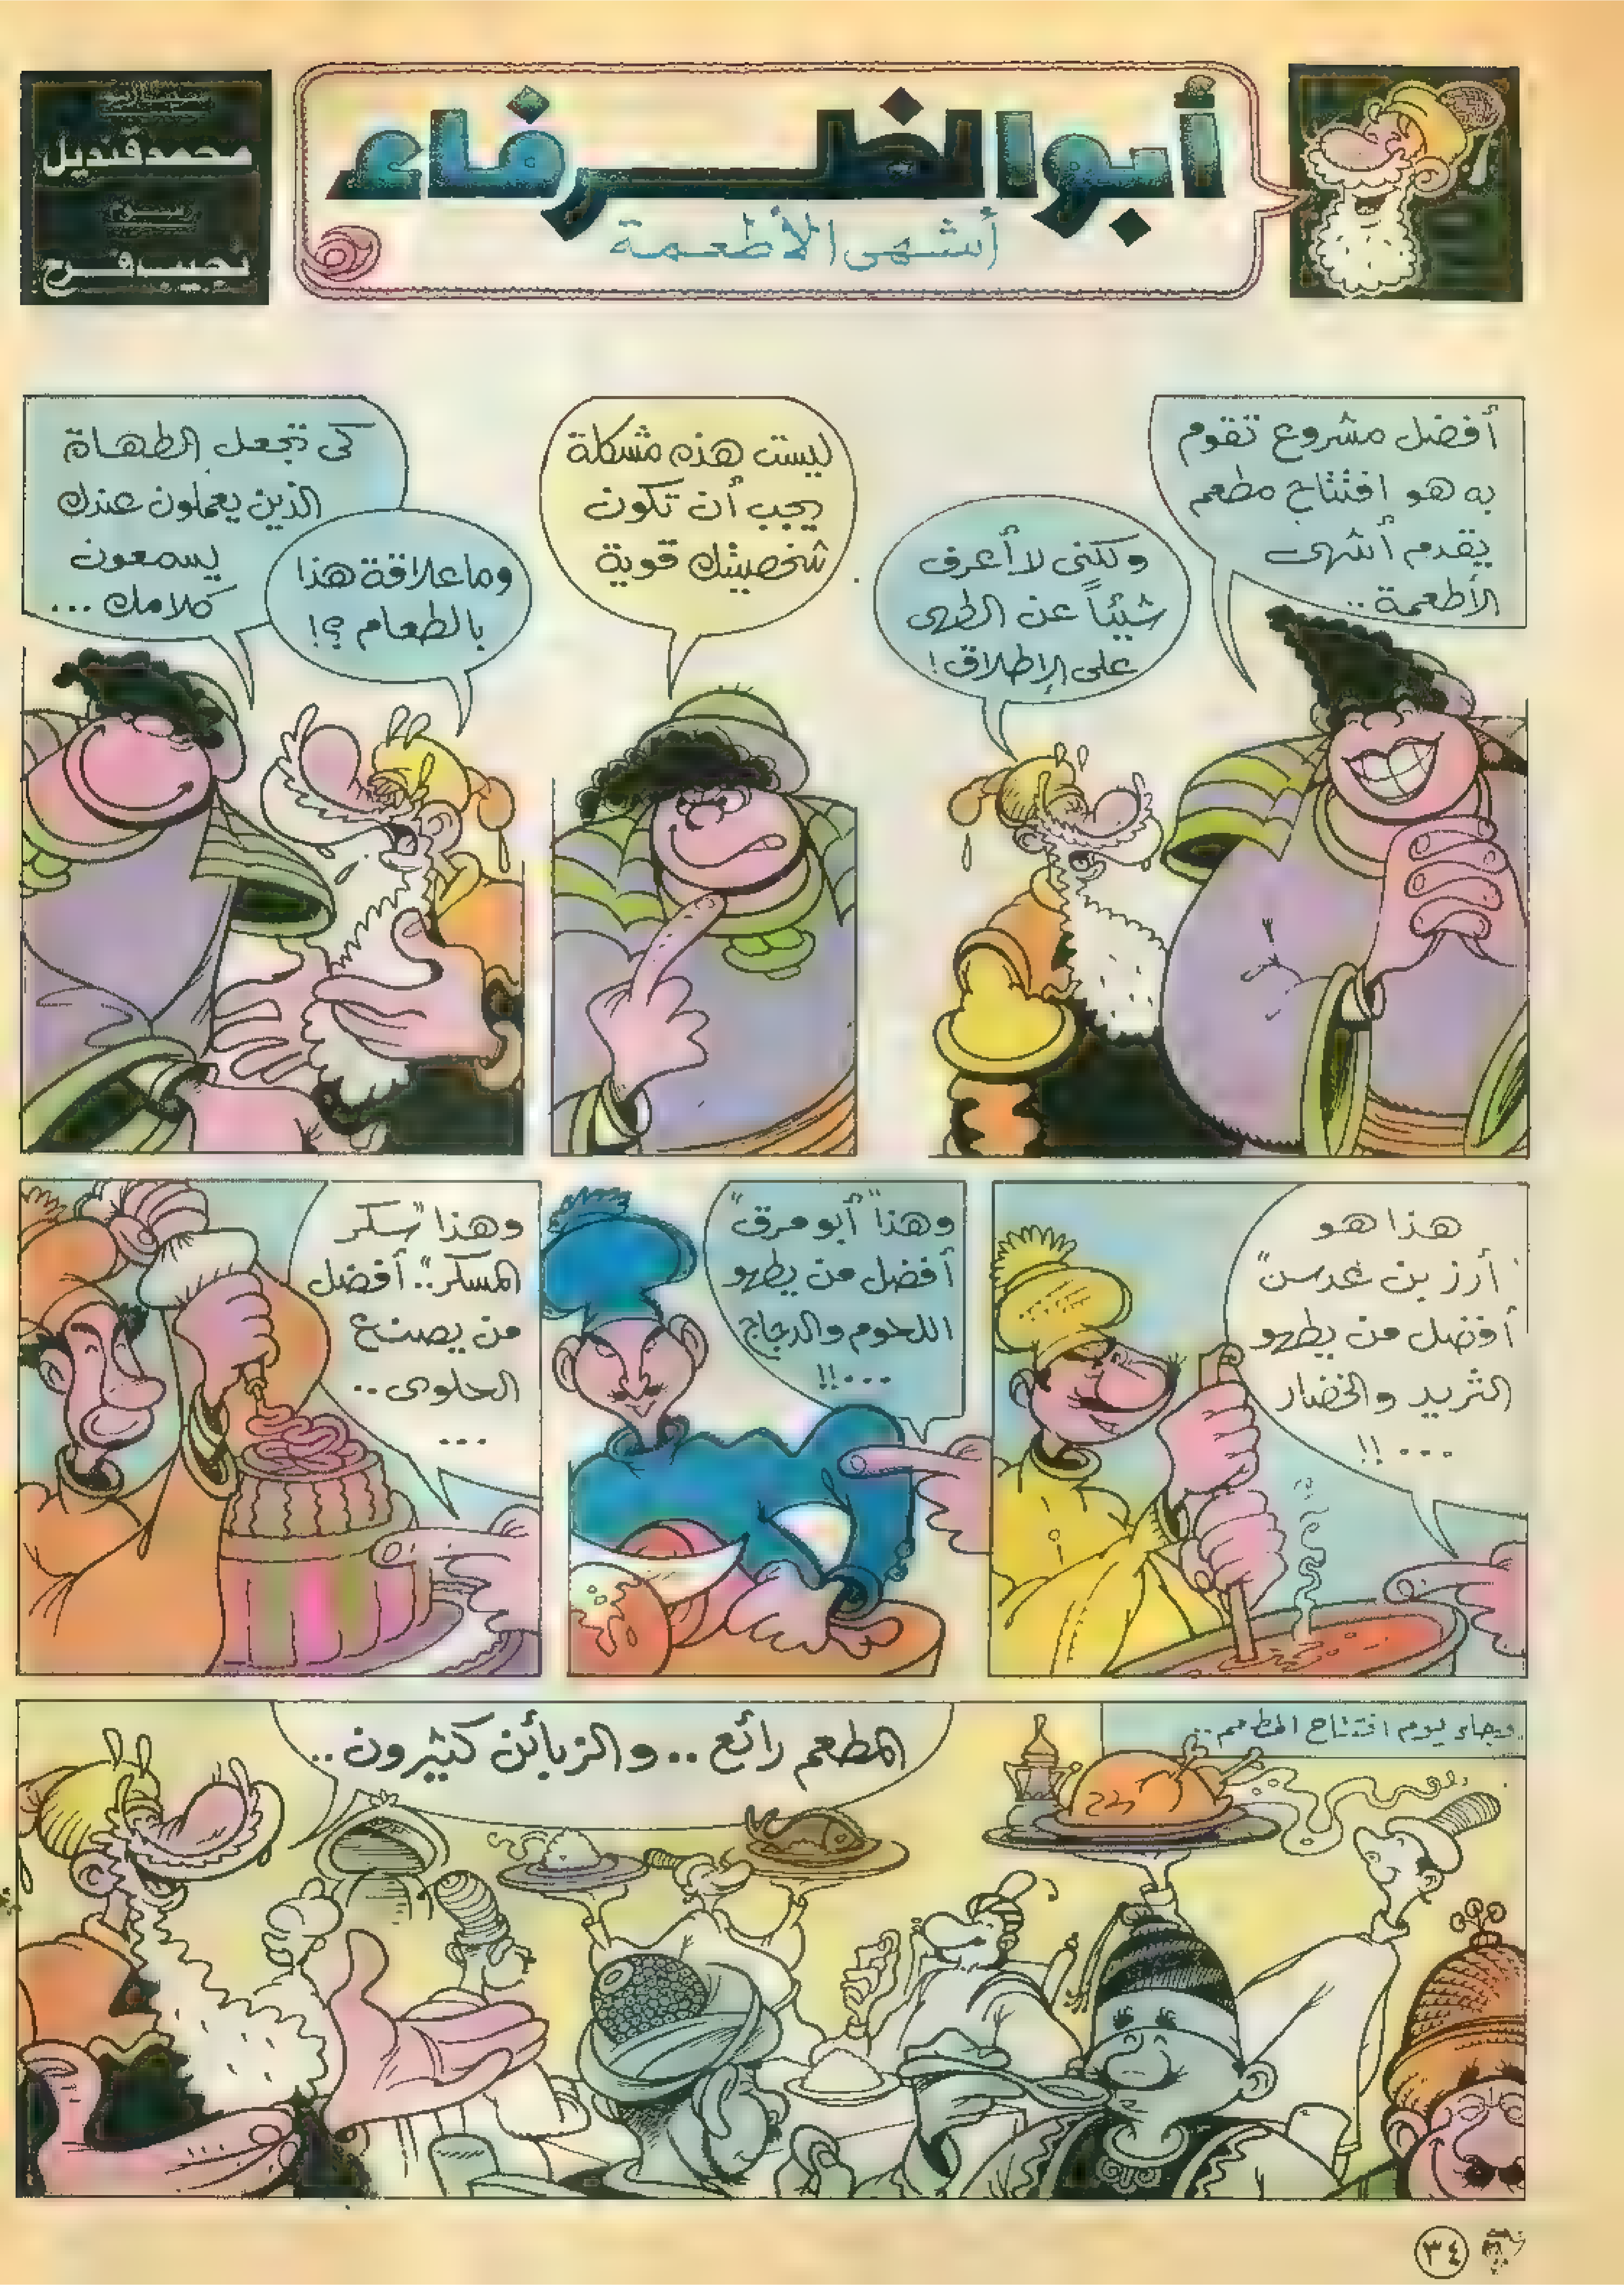 أبو الظرفاء
أشهى الأطعمة
محمد قنديل
رسوم
نجيب فرح
أفضل مشروع تقوم
به هو افتتاح مطعم
يقدم أشهى
الأطعمة..
ولكنى لا أعرف
شيئاً عن الطهى
على الإطلاق!
ليست هذه مشكلة
يجب أن تكون
شخصيتك قوية
وما علاقة هذا
بالطعام ؟!
كى تجعل الطهاة
الذين يعملون عندك
يسمعون
كلامك ...
هذا هو
"أرز بن عدس"
أفضل من يطهو
الثريد والخضار
...!!
وهذا "أبو مرق"
أفضل من يطهو
اللحوم والدجاج
...!!
وهذا "سكر
المسكر".. أفضل
من يصنع
الحلوى ..
...
وجاء يوم افتتاح المطعم ..
المطعم رائع .. والزبائن كثيرون ..
٣٤